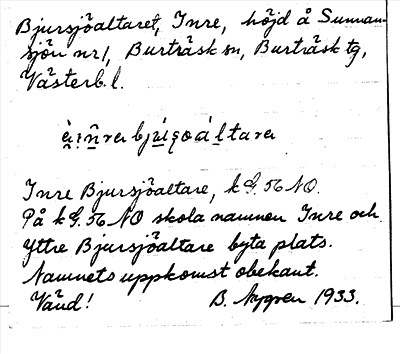 Bjursjöaltaret, Inre, höjd å Sunnan-
sjön nr 1, Burträsk sn, Burträsk tg,
Västerb. l.
Inre Bjursjöaltare, k G. 56 NO.
På k G. 56 NO skola namnen Inre och
Yttre Bjursjöaltare byta plats.
Namnets uppkomst obekant.
Vänd! B. Nygren 1933.